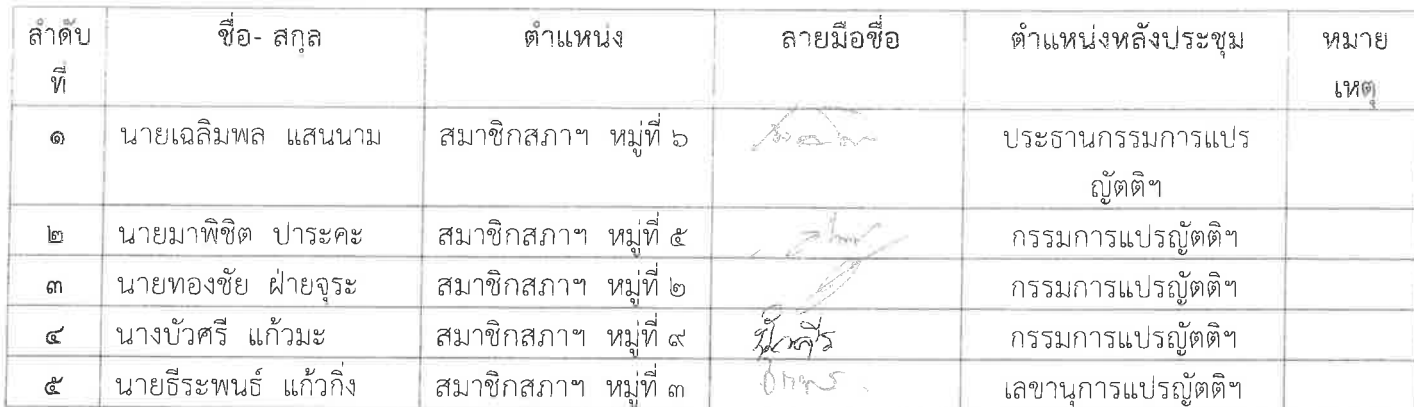 ลำดับ ชื่อ- สกุล ตำแหน่ง ลายมือชื่อ ตำแหน่งหลังประชุม หมาย
ที่ เหตุ
๑ นายเฉลิมพล แสนนาม สมาชิกสภาฯ หมู่ที่ ๖ ประธานกรรมการแปร
ญัตติฯ
๒ นายมาพิชิต ปาระคะ สมาชิกสภาฯ หมู่ที่ ๕ กรรมการแปรญัตติฯ
๓ นายทองชัย ฝ่ายจุระ สมาชิกสภาฯ หมู่ที่ ๒ กรรมการแปรญัตติฯ
๔ นางบัวศรี แก้วมะ สมาชิกสภาฯ หมู่ที่ ๙ กรรมการแปรญัตติฯ
๕ นายธีระพนธ์ แก้วกิ่ง สมาชิกสภาฯ หมู่ที่ ๓ เลขานุการแปรญัตติฯ